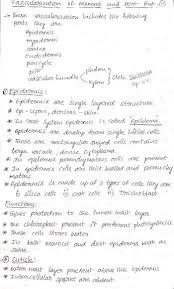 Vascularization of monocot and dicot Root
These vascularization includes the following
parts they are
Epidermis
hypodermis
cortex
Endodermis
pericycle
pith
vascular bundle phloem
xylem stele
① Epidermis:
Epidermis are single layered structure
Epi - upper, dermis - skin
In root system epidermis is called Epiblema
epidermis are develop from single initial cells
These are rectangular shaped cells contains
large vacuole, dense cytoplasm
In epidermis parenchymatous cells are present
In epidermis cells are thin walled and
Epidermis is made up of 2 types of cells they are
① silica cells ② cork cells
Functions:
Gives protection to the inner most layer
The chloroplast present it performs photosynthesis
These cells stores water
In both monocot and dicot epidermis work as
same.
② Cuticle:
outer most layer present above the epidermis
Intercellular spaces are absent